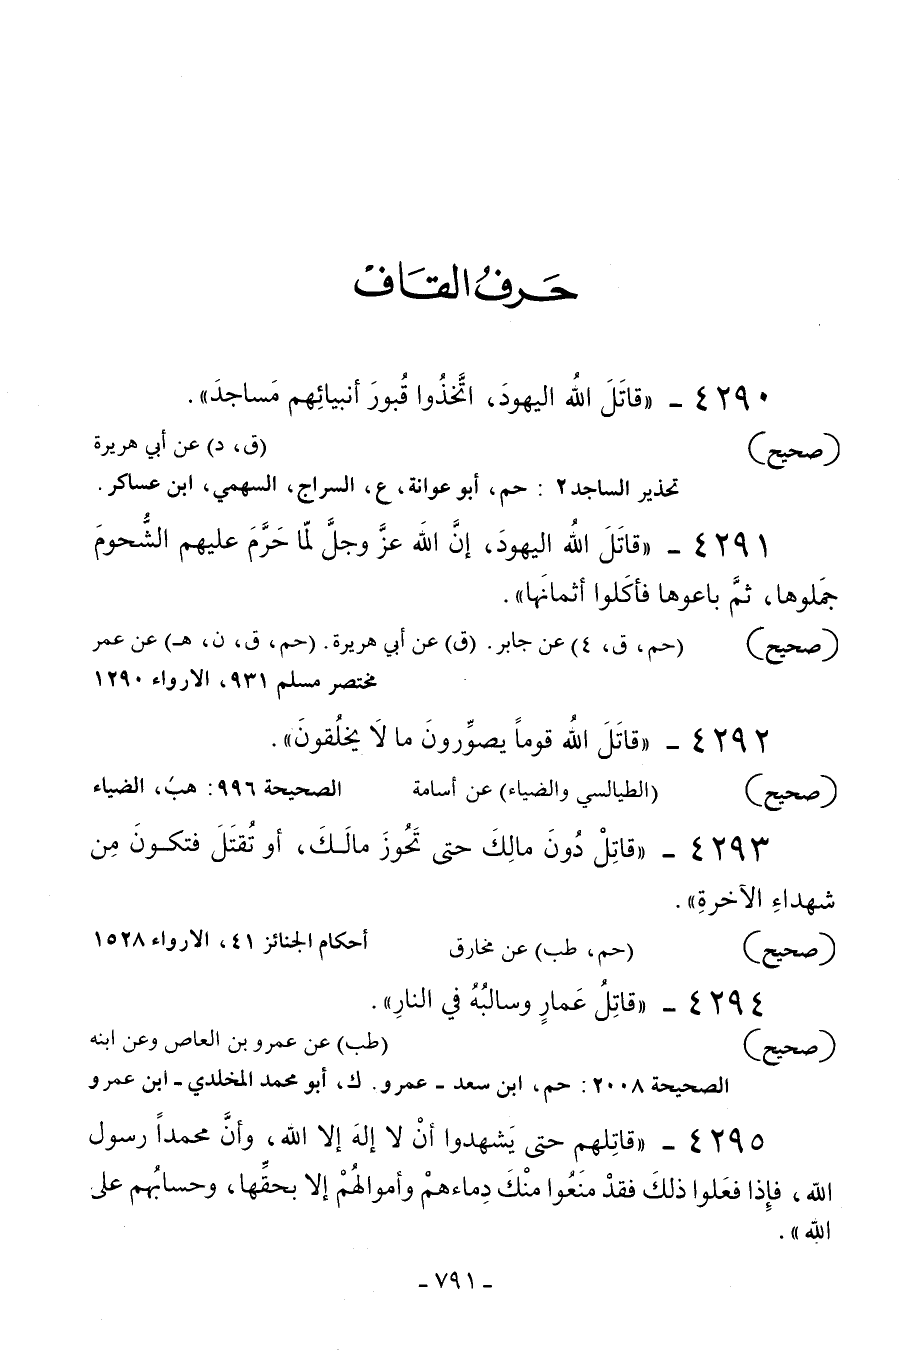 حَرفُ القَافْ
٤٢٩٠ - «قاتَلَ اللهُ اليهودَ، اتَّخذُوا قُبورَ أنبيائِهم مَساجدَ».
(صحيح) (ق، د) عن أبي هريرة
تحذير الساجد ٢ : حم، أبو عوانة، ع، السراج، السهمي، ابن عساكر.
٤٢٩١ - «قاتَلَ اللهُ اليهودَ، إنَّ اللهَ عزَّ وجلَّ لمّا حَرَّمَ عليهم الشُّحومَ
جمَلوها، ثمَّ باعوها فأكَلوا أثمانَها».
(صحيح) (حم، ق، ٤) عن جابر. (ق) عن أبي هريرة. (حم، ق، ن، هـ) عن عمر
مختصر مسلم ٩٣١، الارواء ١٢٩٠
٤٢٩٢ - «قاتَلَ اللهُ قوماً يصوِّرونَ ما لَا يخلُقونَ».
(صحيح) (الطيالسي والضياء) عن أسامة الصحيحة ٩٩٦: هبُ، الضياء
٤٢٩٣ - «قاتِلْ دُونَ مالِكَ حتى تَحُوزَ مالَـكَ، أو تُقتَلَ فتكـونَ مِن
شهداءِ الآخرةِ».
(صحيح) (حم، طب) عن مخارق أحكام الجنائز ٤١، الارواء ١٥٢٨
٤٢٩٤ - «قاتِلُ عَمارٍ وسالبُهُ في النارِ».
(صحيح) (طب) عن عمرو بن العاص وعن ابنه
الصحيحة ٢٠٠٨: حم، ابن سعد - عمرو. ك، أبو محمد المخلدي - ابن عمرو
٤٢٩٥ - «قاتِلهم حتى يَشهدوا أنْ لا إلهَ إلا الله، وأنَّ محمداً رسول
الله، فإِذا فعَلوا ذلكَ فقدْ منَعُوا منْكَ دِماءهمْ وأموالهُمْ إلا بحقِّها، وحسابُهم على
الله».
- ٧٩١ -